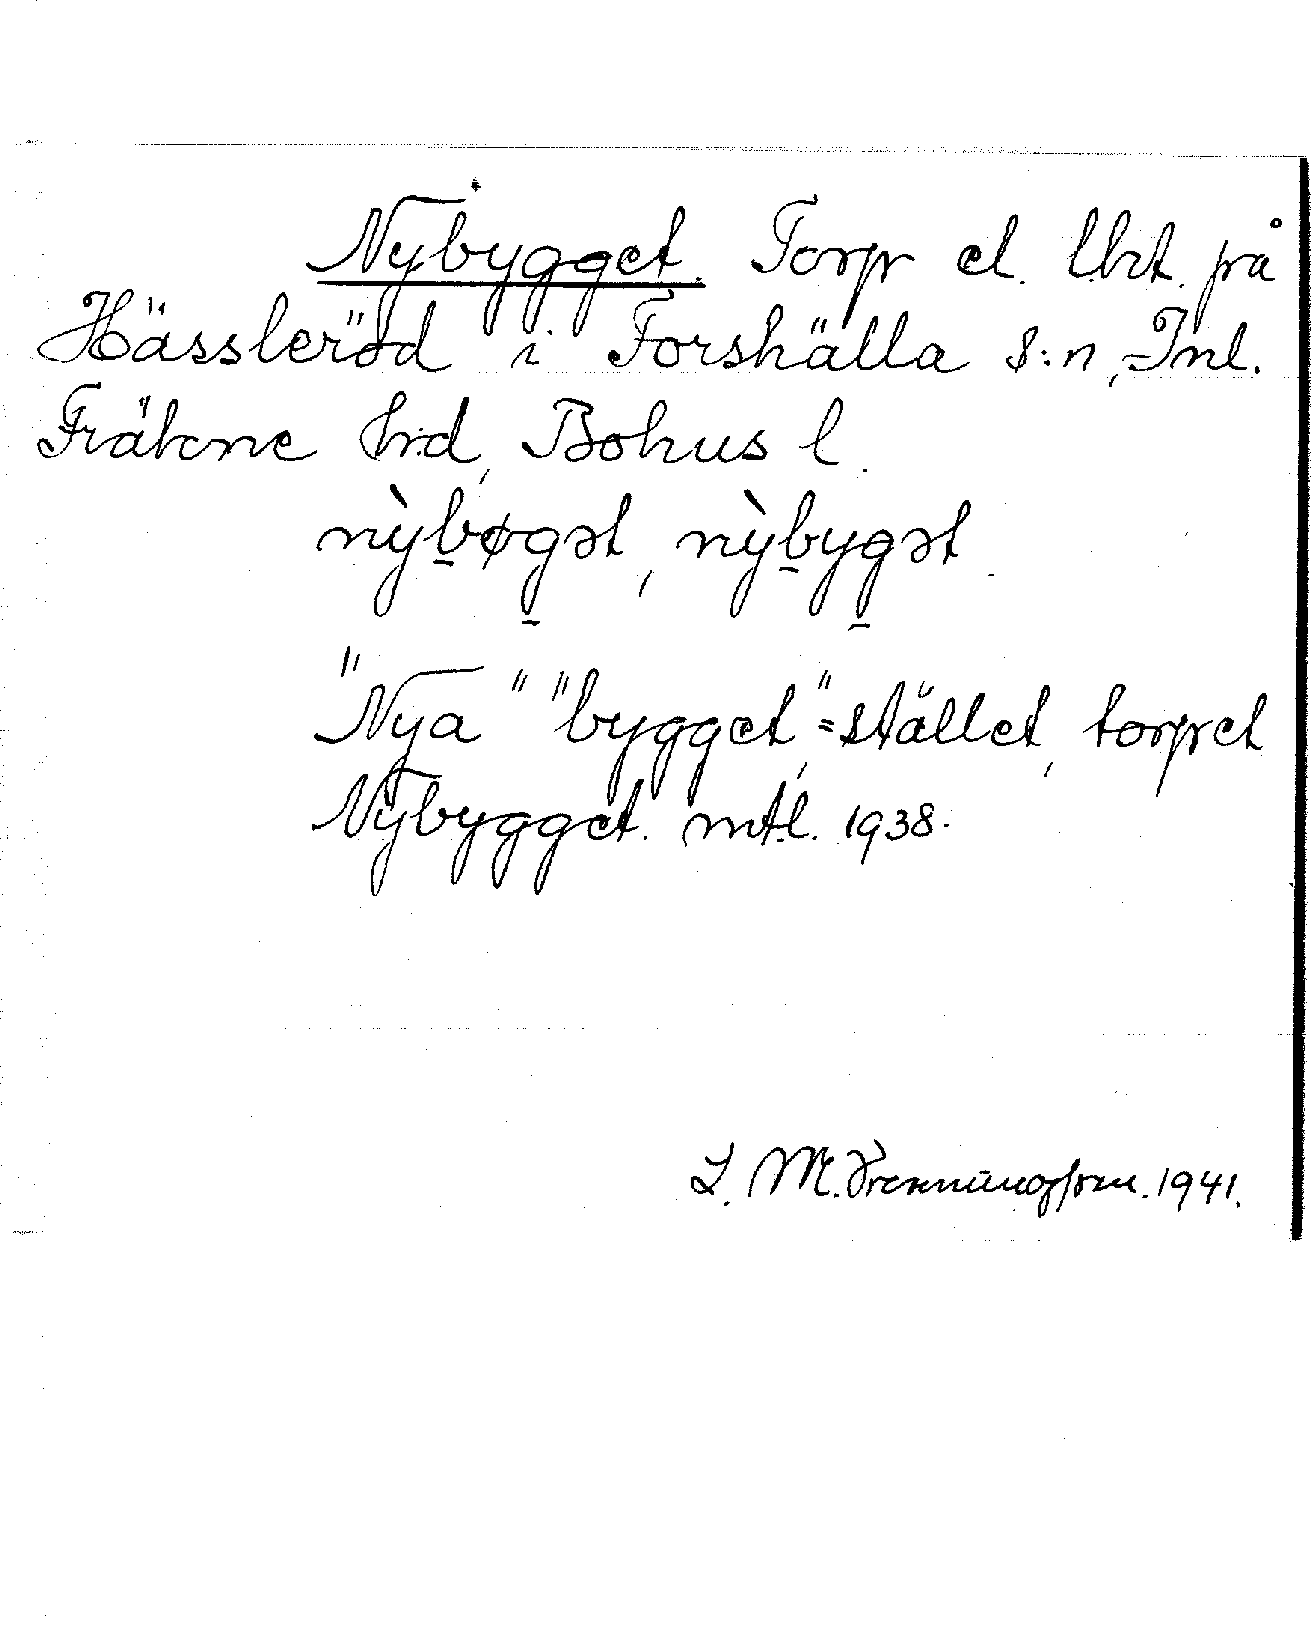 Nybygget. Torp el. lht. på
Hässleröd i Forshälla s:n, Inl.
Fräkne hrd, Bohus l.
nỳbøgət, nỳbygət
"Nya" "bygget," = stället, torpet
Nybygget. mtl. 1938.
L. M. 1941.